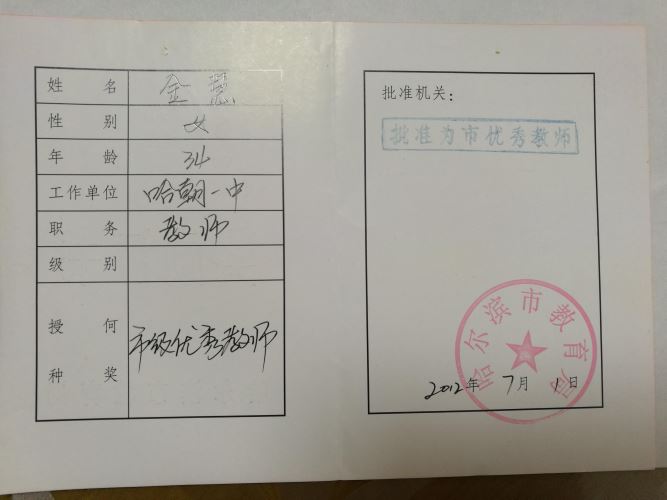 姓名 金慧
性别 女
年龄 34
工作单位 哈朝一中
职务 教师
级别
授何种奖 市级优秀教师
批准机关:
批准为市优秀教师
哈尔滨市教育局
2012年7月1日